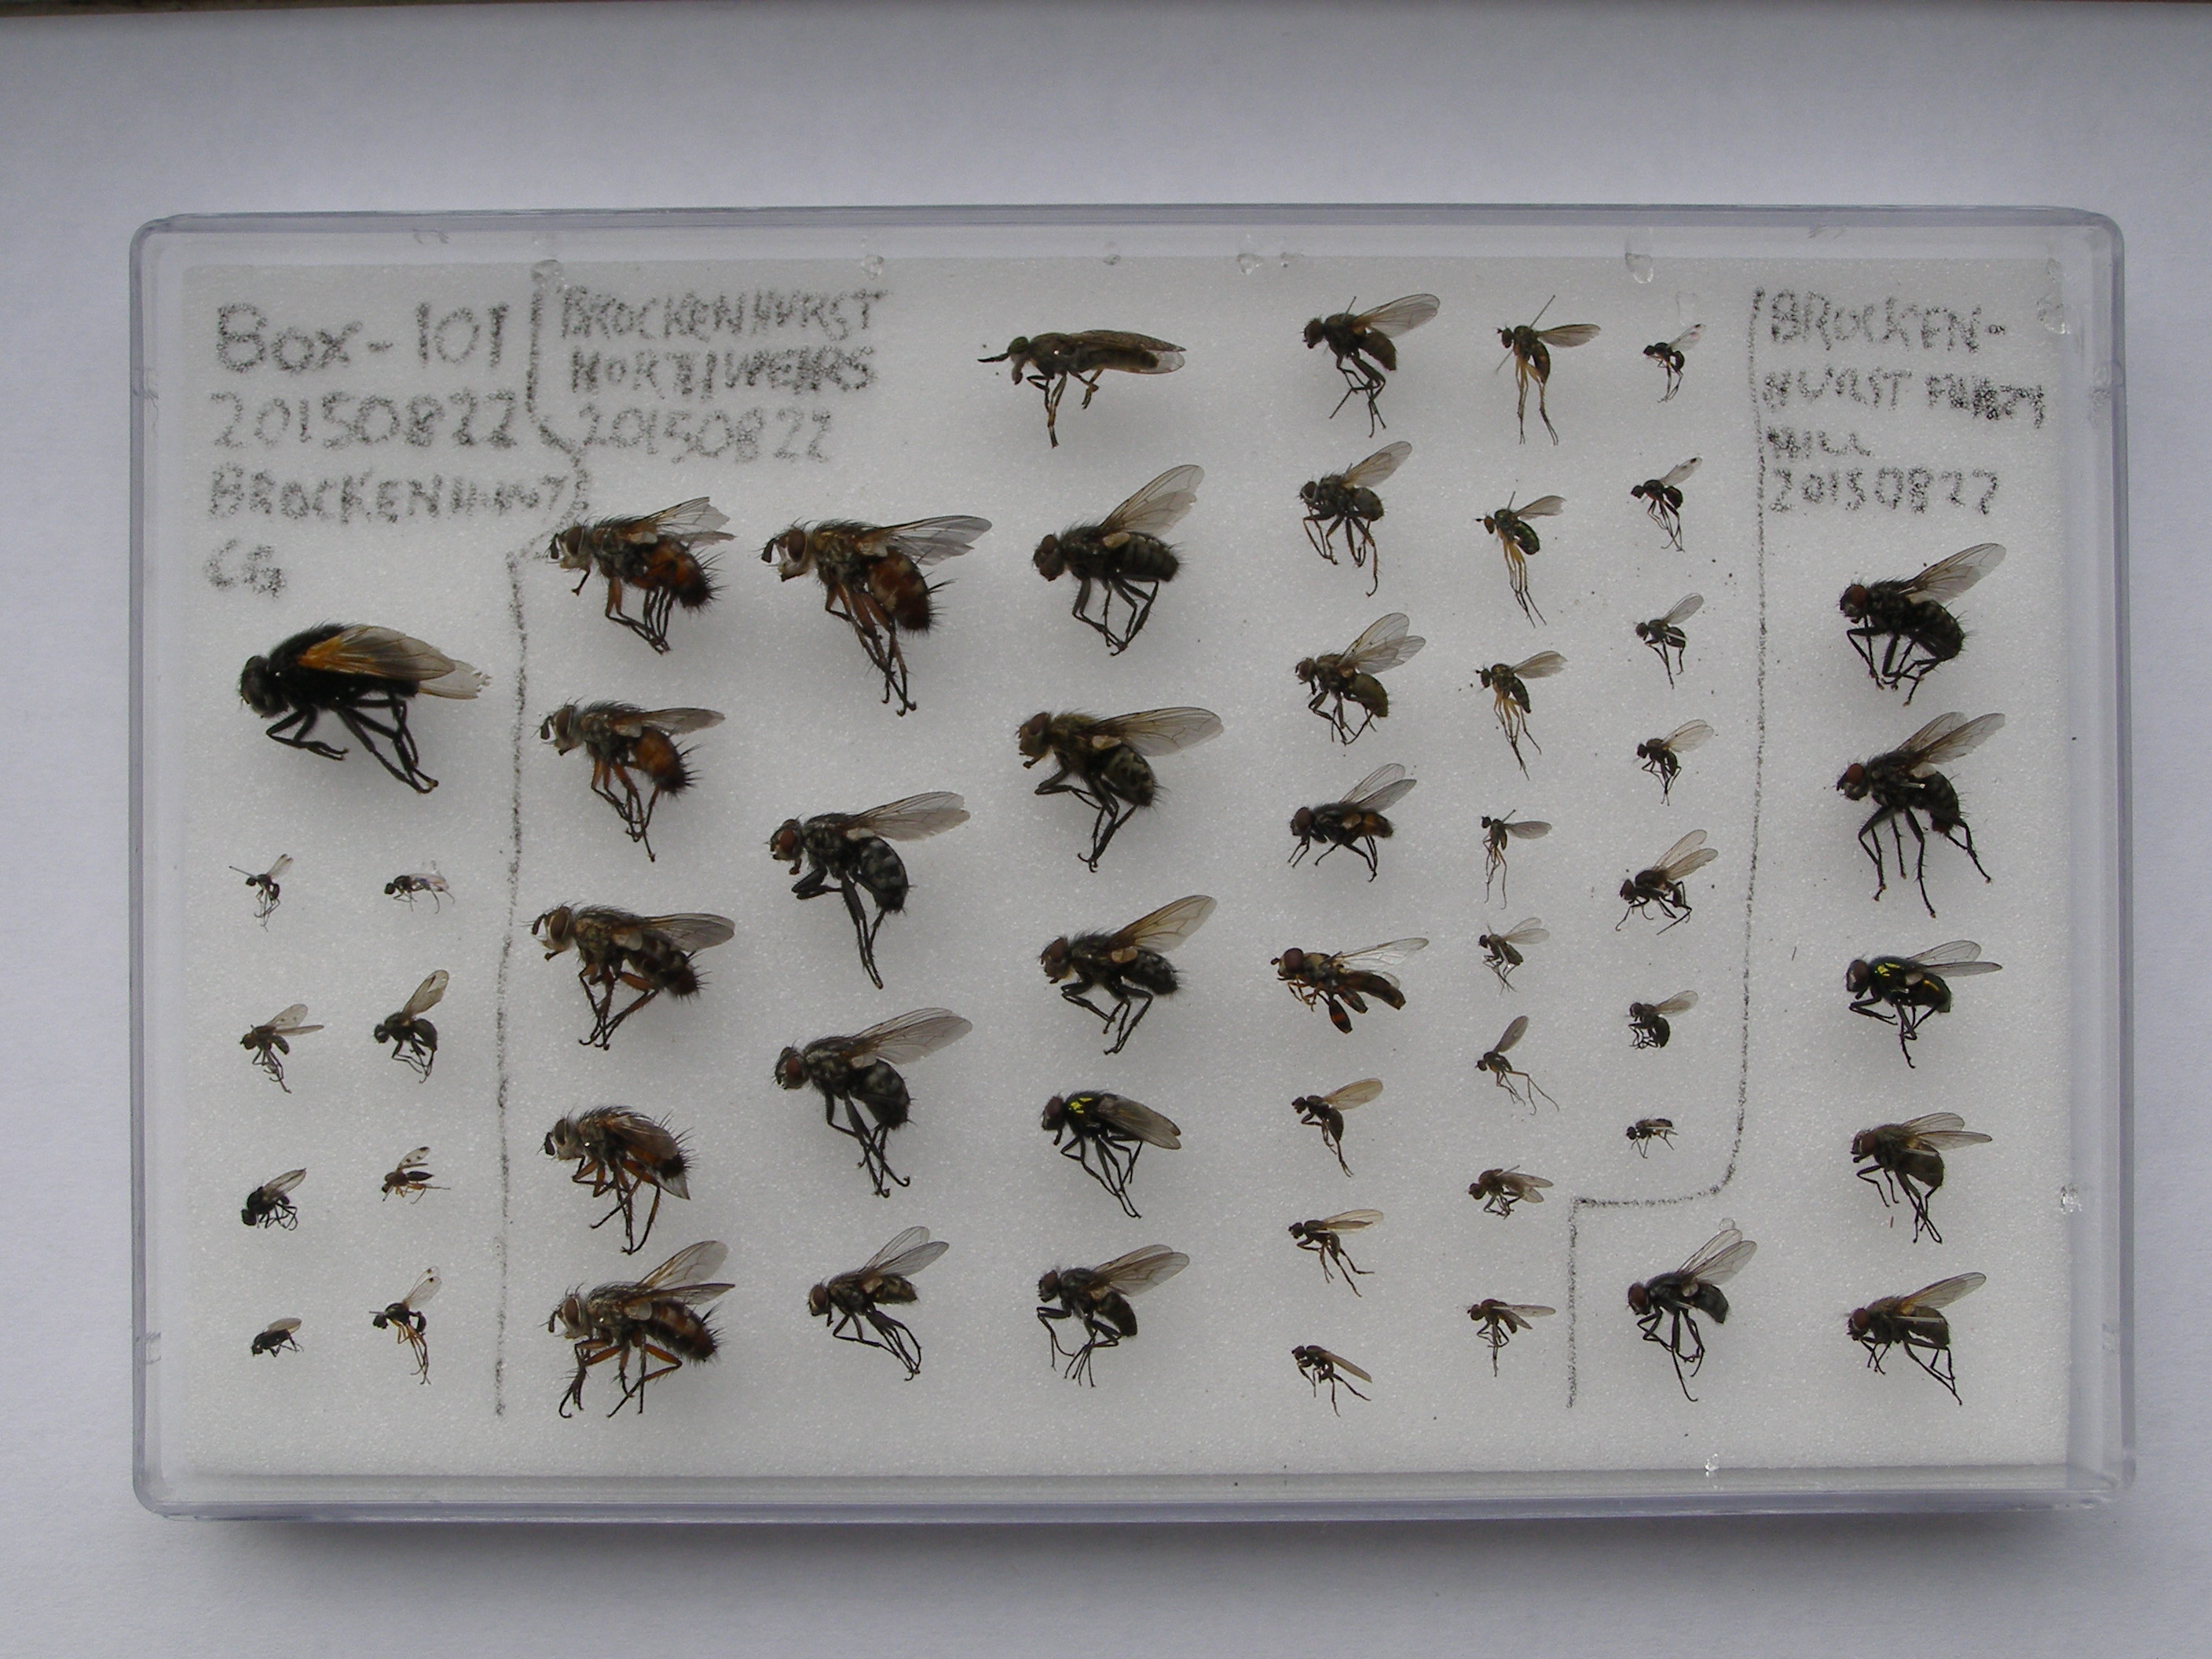 Box-101
20150822
BROCKENHURST
CG
BROCKENHURST
NORTHWEIRS
20150822
BROCKEN-
HURST FURZY
HILL
20150822